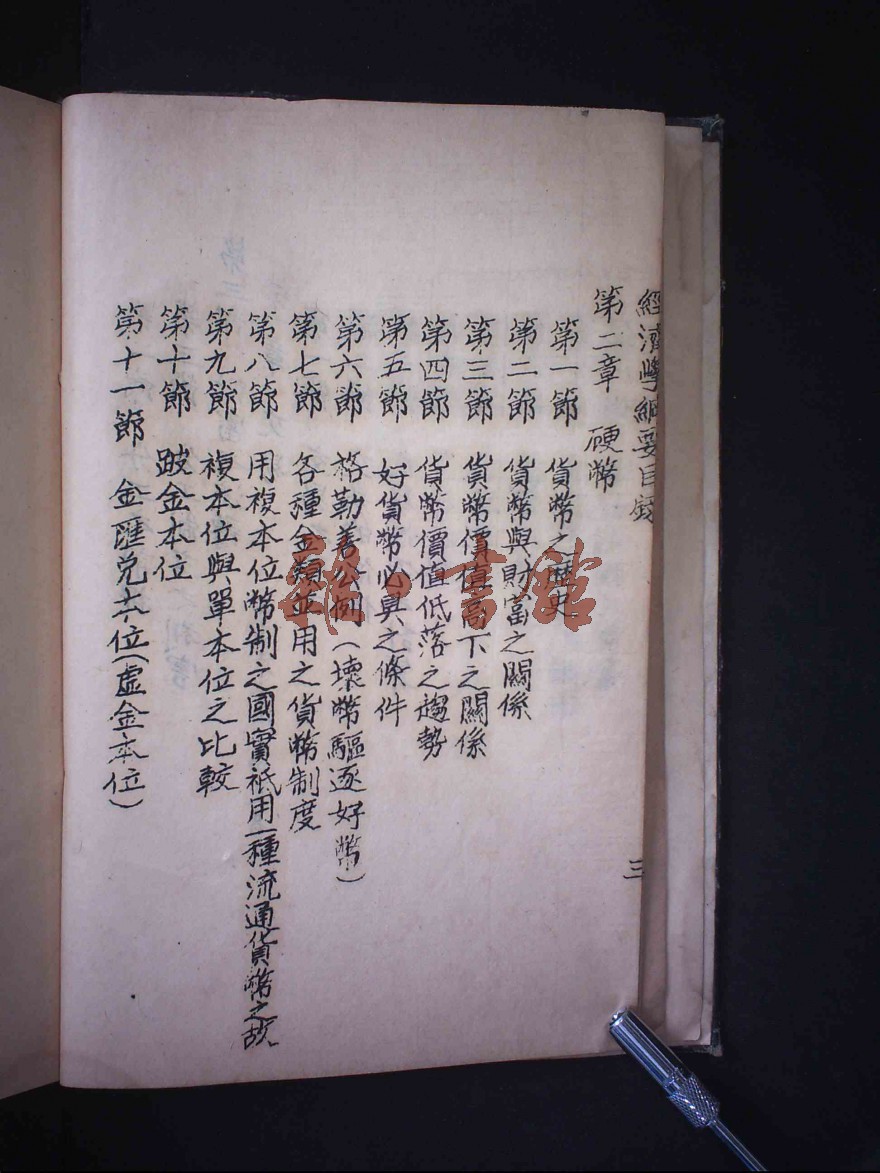 經濟學綱要目錄
三
第二章 硬幣
第一節 貨幣之歷史
第二節 貨幣與財富之關係
第三節 貨幣價值高下之關係
第四節 貨幣價值低落之趨勢
第五節 好貨幣必具之條件
第六節 格勒善公例(壞幣驅逐好幣)
第七節 各種金類並用之貨幣制度
第八節 用複本位幣制之國實祇用一種流通貨幣之故
第九節 複本位與單本位之比較
第十節 跛金本位
第十一節 金匯兌本位(虛金本位)